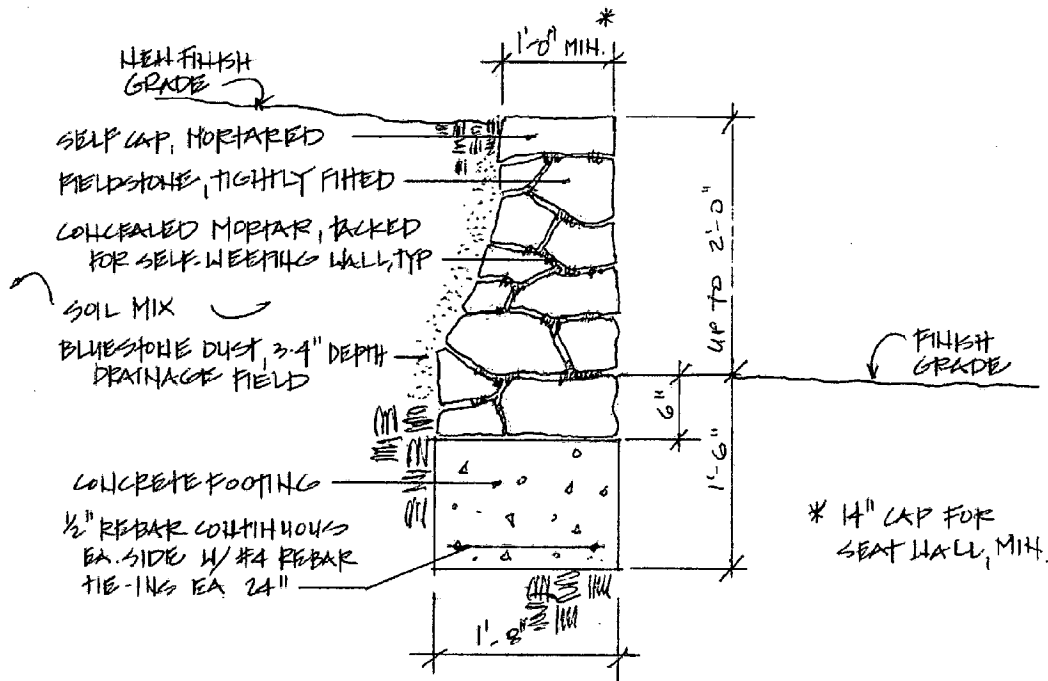 *
1'-0" MIN.
NEW FINISH
GRADE
SELF CAP, MORTARED
FIELDSTONE, TIGHTLY FITTED
CONCEALED MORTAR, BACKED
FOR SELF-WEEPING WALL, TYP
SOIL MIX
BLUESTONE DUST, 3-4" DEPTH
DRAINAGE FIELD
CONCRETE FOOTING
½" REBAR CONTINUOUS
EA. SIDE W/ #4 REBAR
TIE-INS EA 24"
UP TO 2'-0"
6"
1'-6"
FINISH
GRADE
* 14" CAP FOR
SEAT WALL, MIN.
1'-8"